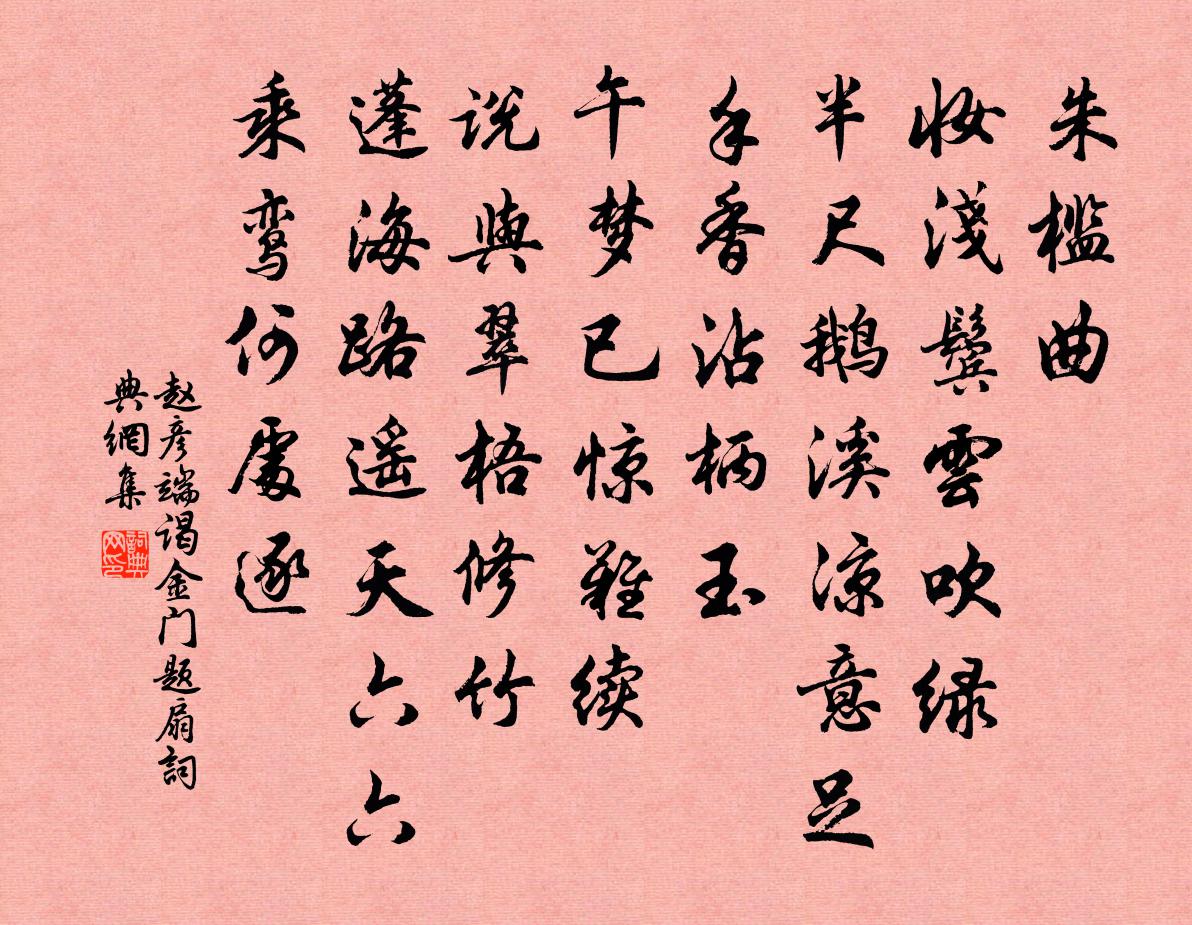 朱槛曲
妆淺鬓雲吹绿
半尺鹅溪凉意足
手香沾柄玉
午梦已惊難续
说與翠梧修竹
蓬海路遥天六六
乘鸾何處逐
赵彦端谒金门题扇詞
典網集
詞典网印